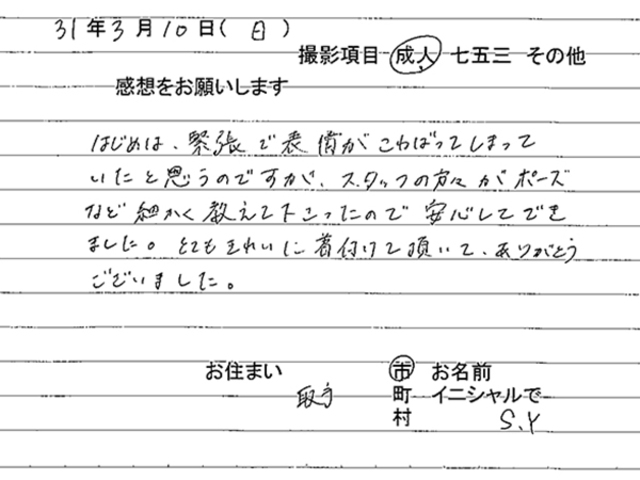 31年3月10日(日)
撮影項目 成人 七五三 その他
感想をお願いします
はじめは、緊張で表償がこわばってしまって
いたと思うのですが、スタッフの方々がポーズ
など細かく教えて下さったので安心してでき
ました。とてもきれいに着付けて頂いて、ありがとう
ございました。
お住まい 取手 市 お名前
町 イニシャルで
村 S.Y